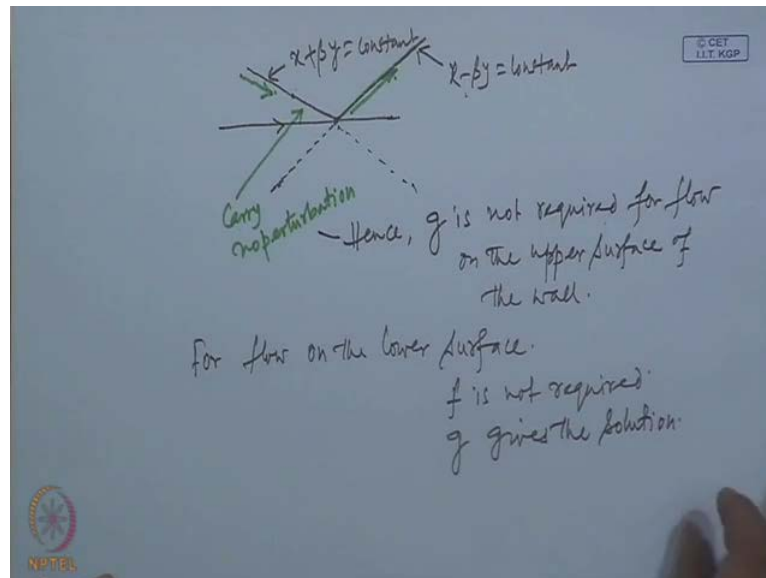 x+βy = constant
© CET
I.I.T. KGP
x-βy = constant
Carry
no perturbation
— Hence, g is not required for flow
on the upper surface of
the wall.
For flow on the lower surface.
f is not required.
g gives the solution.
NPTEL